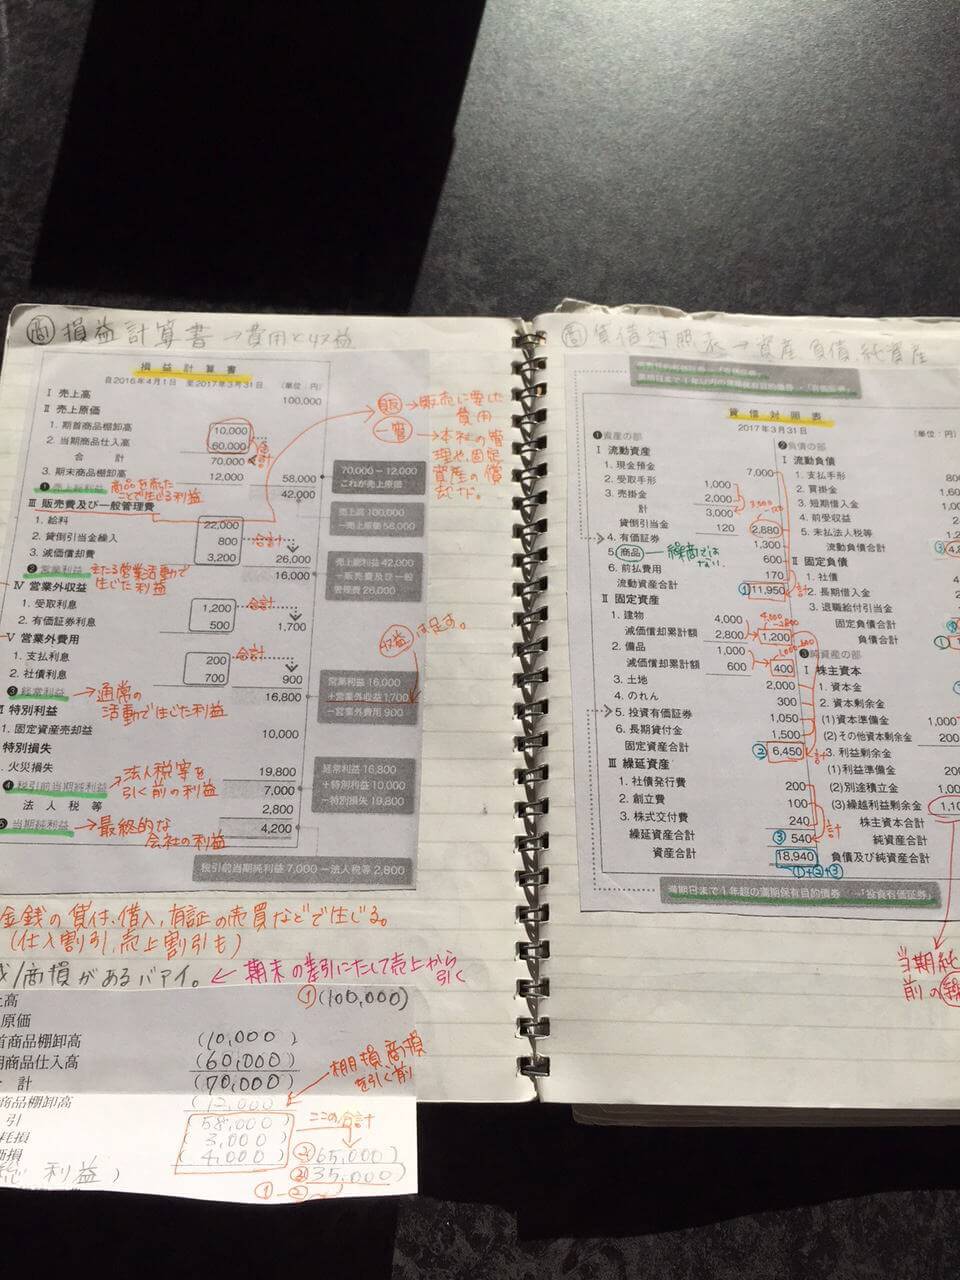 商 損益計算書 →費用と収益
損益計算書
自2016年4月1日 至2017年3月31日 (単位:円)
Ⅰ 売上高 100,000
Ⅱ 売上原価
1. 期首商品棚卸高 10,000
2. 当期商品仕入高 60,000
合計 70,000 合計
3. 期末商品棚卸高 12,000 58,000
❶ 売上総利益 42,000
商品を売った
ことで生じる利益
Ⅲ 販売費及び一般管理費
1. 給料 22,000
2. 貸倒引当金繰入 800 合計
3. 減価償却費 3,200 26,000
❷ 営業利益 16,000
主たる営業活動で
生じた利益
Ⅳ 営業外収益
1. 受取利息 1,200 合計
2. 有価証券利息 500 1,700
Ⅴ 営業外費用
1. 支払利息 200 合計
2. 社債利息 700 900
❸ 経常利益 16,800
→通常の
活動で生じた利益
特別利益
1. 固定資産売却益 10,000
特別損失
火災損失 19,800
❹ 税引前当期純利益 7,000
→法人税等を
引く前の利益
法人税等 2,800
当期純利益 4,200
→最終的な
会社の利益
70,000-12,000
これが売上原価
売上高 100,000
-売上原価 58,000
売上総利益 42,000
-販売費及び一般
管理費 26,000
営業利益 16,000
+営業外収益 1,700
-営業外費用 900
経常利益 16,800
+特別利益 10,000
-特別損失 19,800
税引前当期純利益 7,000-法人税等 2,800
販→販売に要した
費用
一管→本社の管
理や、固定
資産の償
却など。
収益は足す。
金銭の貸付、借入、有証の売買などで生じる。
(仕入割引、売上割引も)
/商損があるバアイ。←期末の差引にたして売上から
引く
上高 ①(100,000)
原価
首商品棚卸高 (10,000)
期商品仕入高 (60,000)
計 (70,000)
商品棚卸高 (12,000)
棚損、商損
を引く前
引 (58,000) ここの合計
耗損 (3,000)
価損 (4,000) ②(65,000)
利益) (35,000)
①-②
商 貸借対照表→資産、負債、純資産
貸借対照表
2017年3月31日 (単位:円)
❶資産の部
Ⅰ 流動資産
1. 現金預金 7,000
2. 受取手形 1,000
3. 売掛金 2,000
計 3,000
貸倒引当金 120 2,880
4. 有価証券 1,300
5. 商品 600
―繰商では
ない。
6. 前払費用 170
流動資産合計 ①11,950 合計
Ⅱ 固定資産
1. 建物 4,000
減価償却累計額 2,800 1,200
2. 備品 1,000
減価償却累計額 600 400
3. 土地 2,000
4. のれん 300
5. 投資有価証券 1,050
6. 長期貸付金 1,500
固定資産合計 ②6,450 合計
Ⅲ 繰延資産
1. 社債発行費 200
2. 創立費 100
3. 株式交付費 240
繰延資産合計 ③540 合計
資産合計 18,940
①+②+③
❷負債の部
Ⅰ 流動負債
1. 支払手形
2. 買掛金
3. 短期借入金
4. 前受収益
5. 未払法人税等
流動負債合計
Ⅱ 固定負債
1. 社債
2. 長期借入金
3. 退職給付引当金
固定負債合計
負債合計
❸純資産の部
Ⅰ 株主資本
1. 資本金
2. 資本剰余金
(1)資本準備金
(2)その他資本剰余金 200
3. 利益剰余金
(1)利益準備金
(2)別途積立金
(3)繰越利益剰余金
株主資本合計
純資産合計
負債及び純資産合計
満期日まで1年超の満期保有目的債券→「投資有価証券」
当期純
前の繰